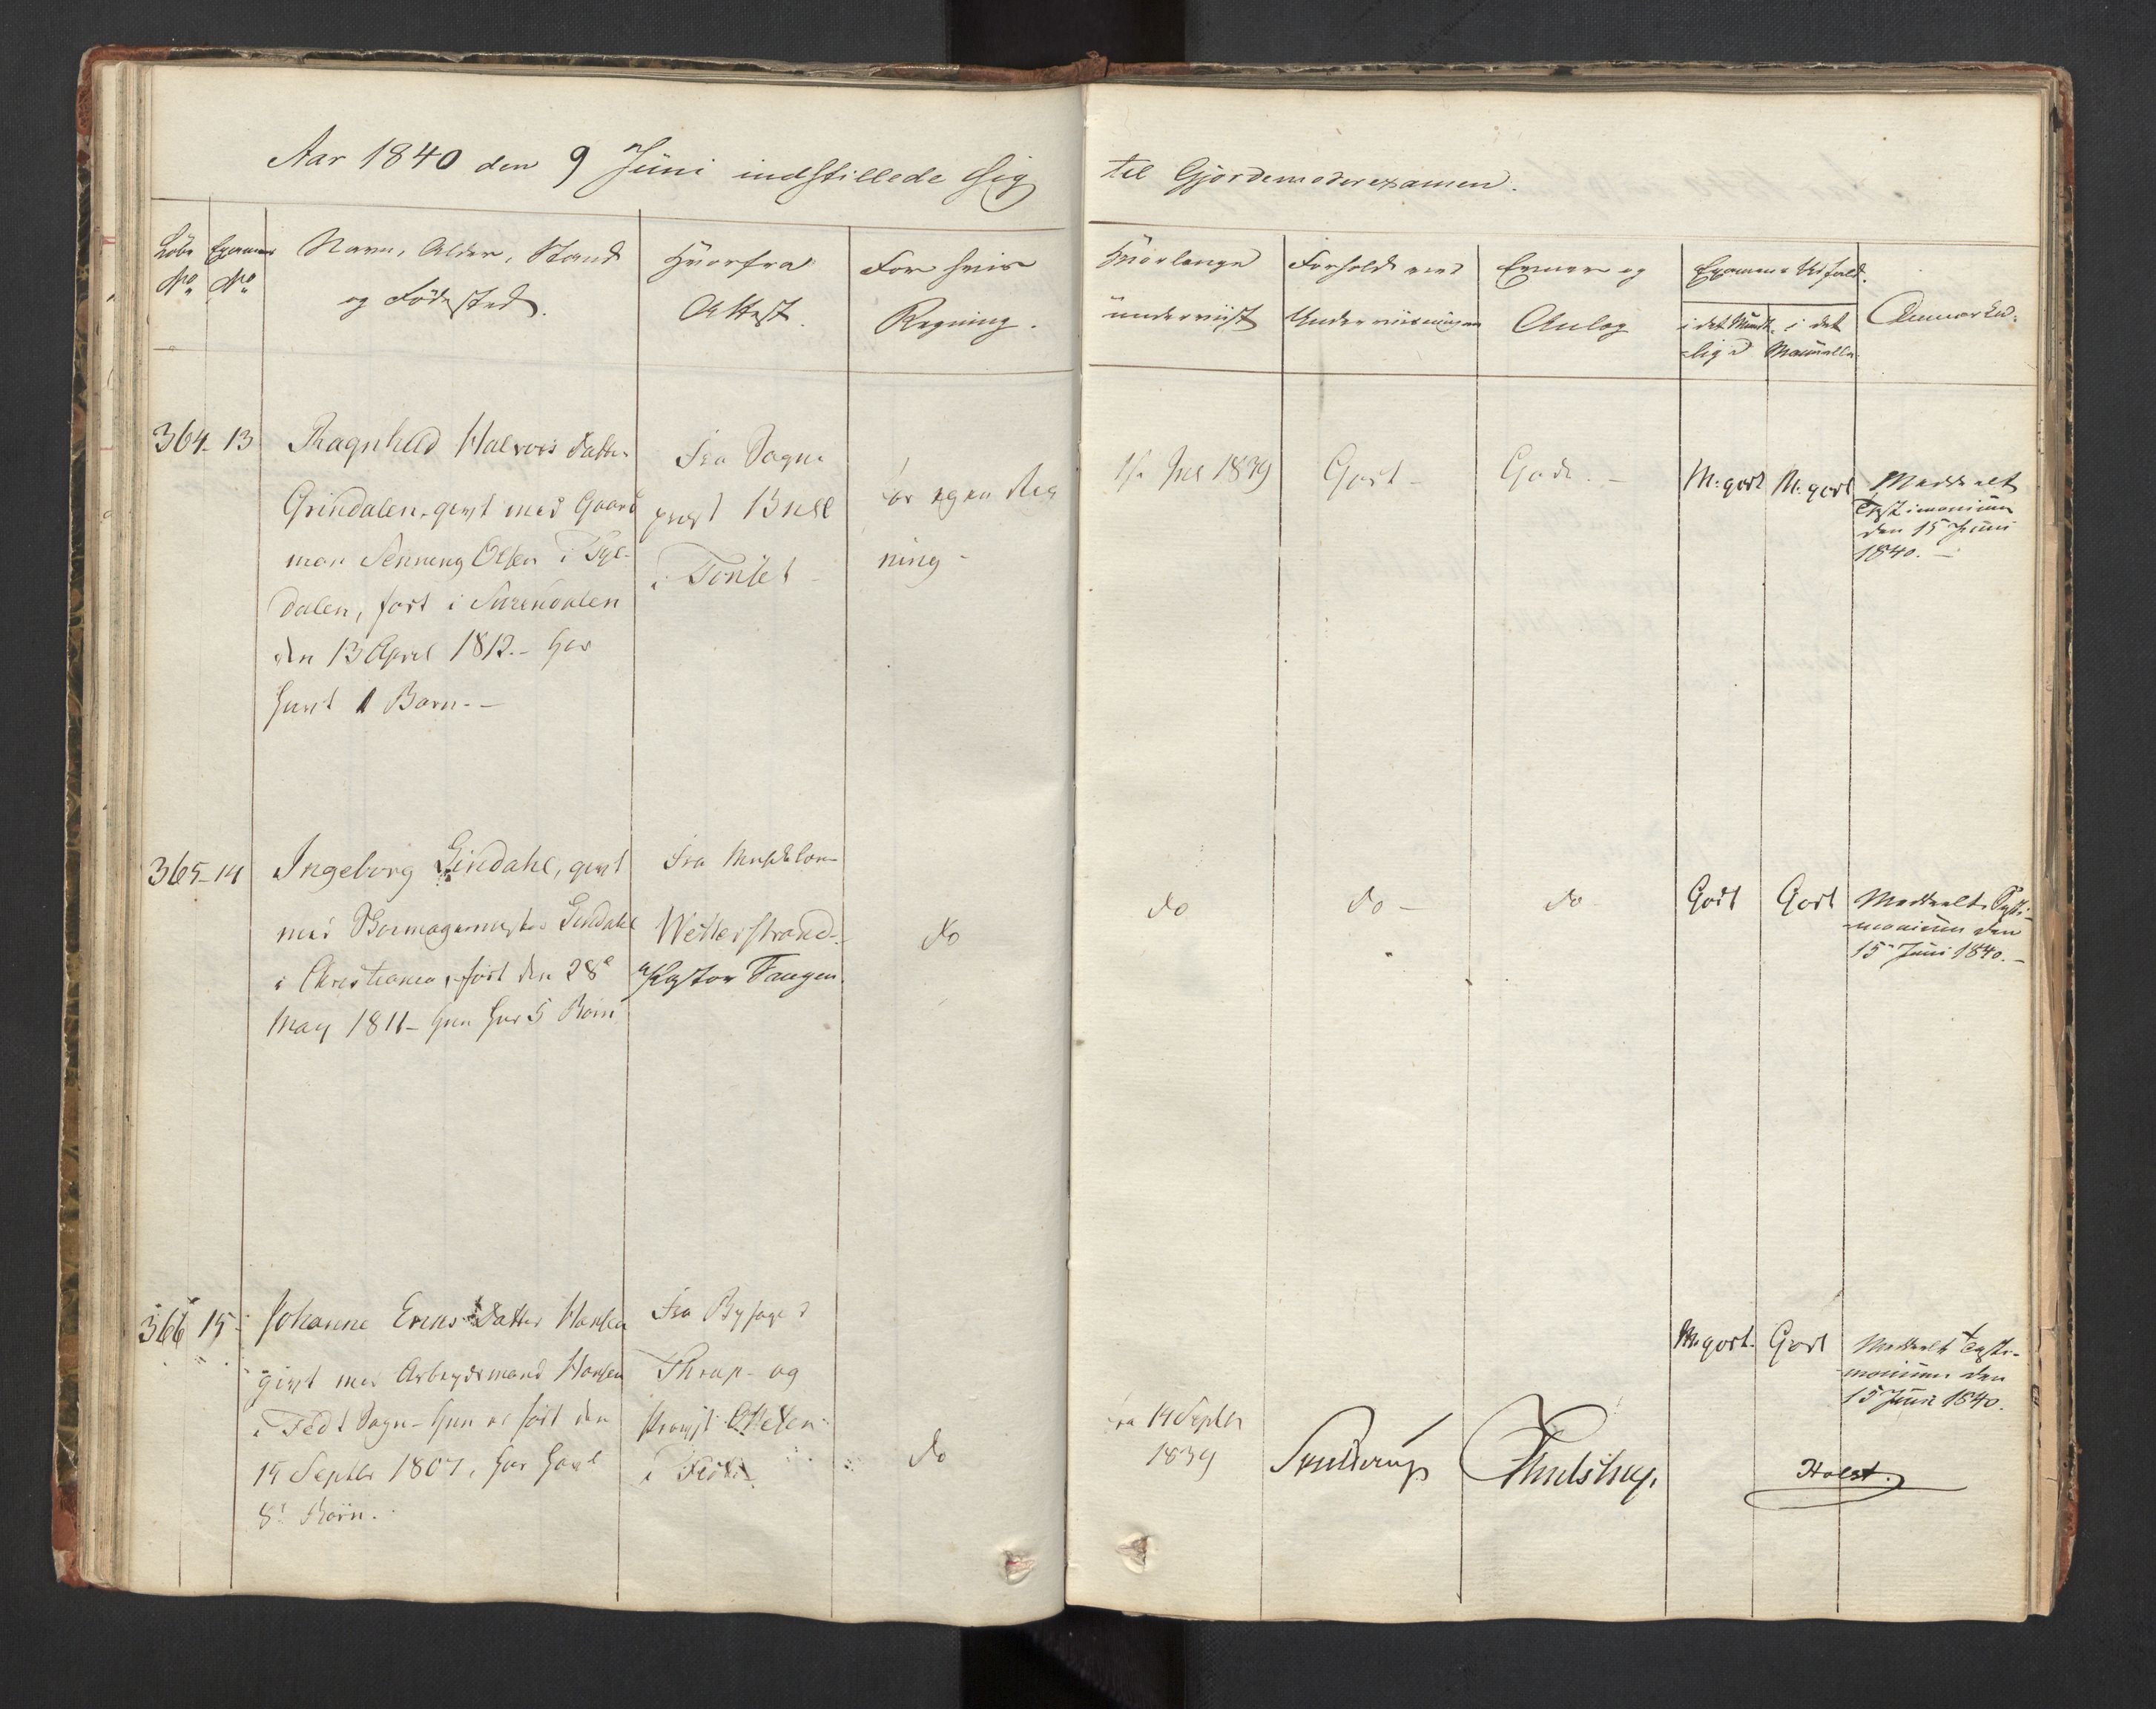 Aar 1840 den 9 Juni indstillede sig til Gjordemoderexamen.
Löbe No
Examens No
Navn, Alder, Stand
og Födested.
Hvorfra
Attest.
For hvis
Regning.
Hvorlænge
underviist
Forhold ved
Underviisningen
Evner og
Anlæg
Examens Udfald.
i det Mundt-
lige
i det
Manuelle
Anmærkn.
364 - 13
Ragnhild Halvors Datter
Grindalen, givt med Gaard
man Henning Olsen i Tyl-
dalen, født i Surendalen
den 13 April 1812. - har
havt 1 Barn. -
Fra Sogne
prest Bull
i Tönset
for egen Reg
ning -
1st Juli 1839
Godt -
Gode. -
M: godt
M: godt
Meddeelt
Testimonium
den 15 Juni
1840. -
365 - 14
Ingeborg Lindahl, givt
med Skomagermester Lindahl
i Christiania, født den 28e
May 1811 - hun har 5 Børn
Fra
Wetterstrand -
Pastor Tangen.
do
do
do -
do
Godt
Godt
Meddeelt Testi-
monium den
15 Juni 1840. -
366 15
Johanne Eriks Datter Hansen
givt med Arbeydsmand Hansen
i Sogn - hun er født den
14 Septbr 1807, har havt
8 Børn.
Fra Byfoged
Thrap - og
Provst
i
do
fra 14 Septbr
1839
M: godt.
Godt
Meddeelt Testi-
monium den
15 Juni 1840.
Holst.